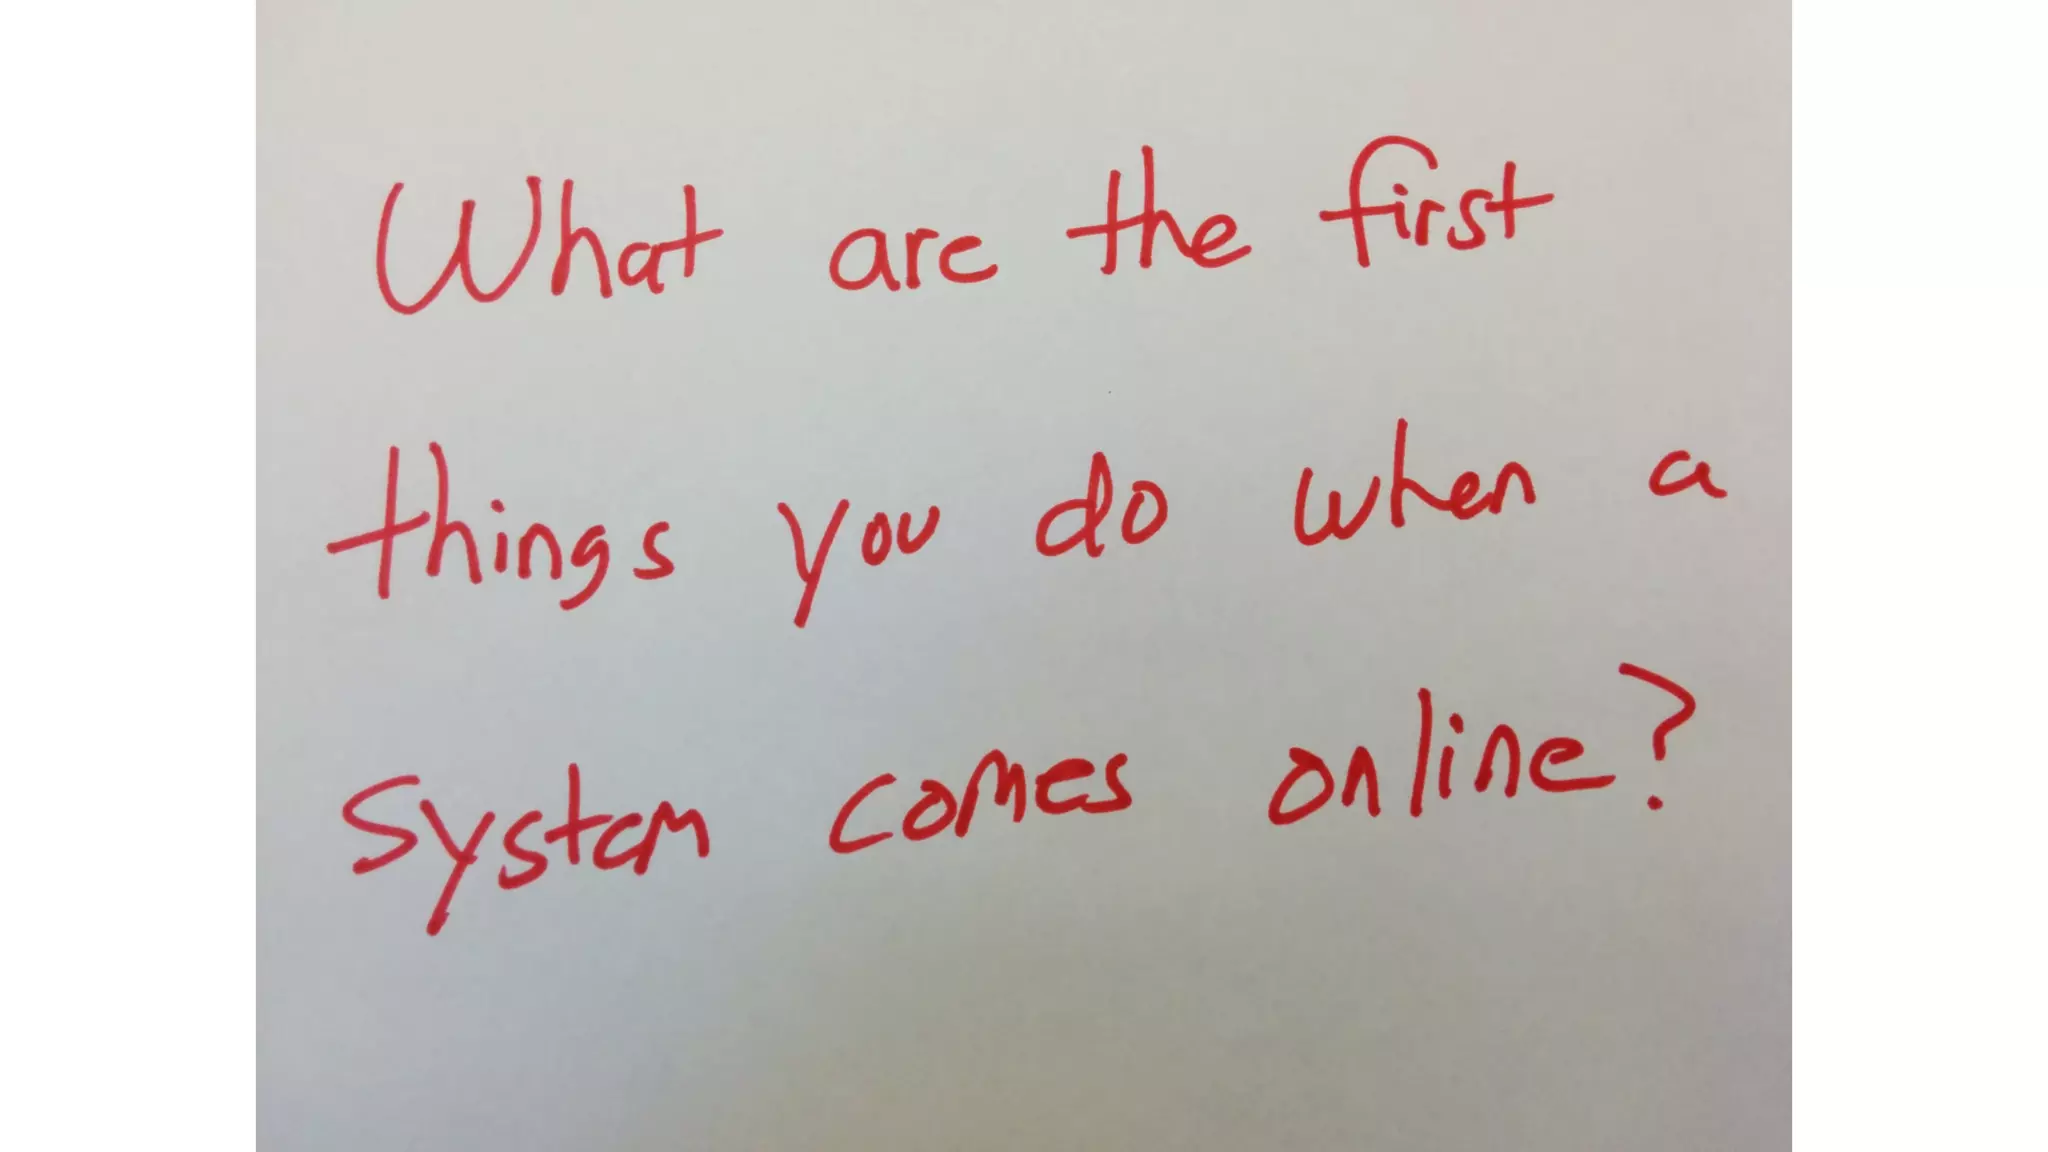 What are the first
things you do when a
system comes online?